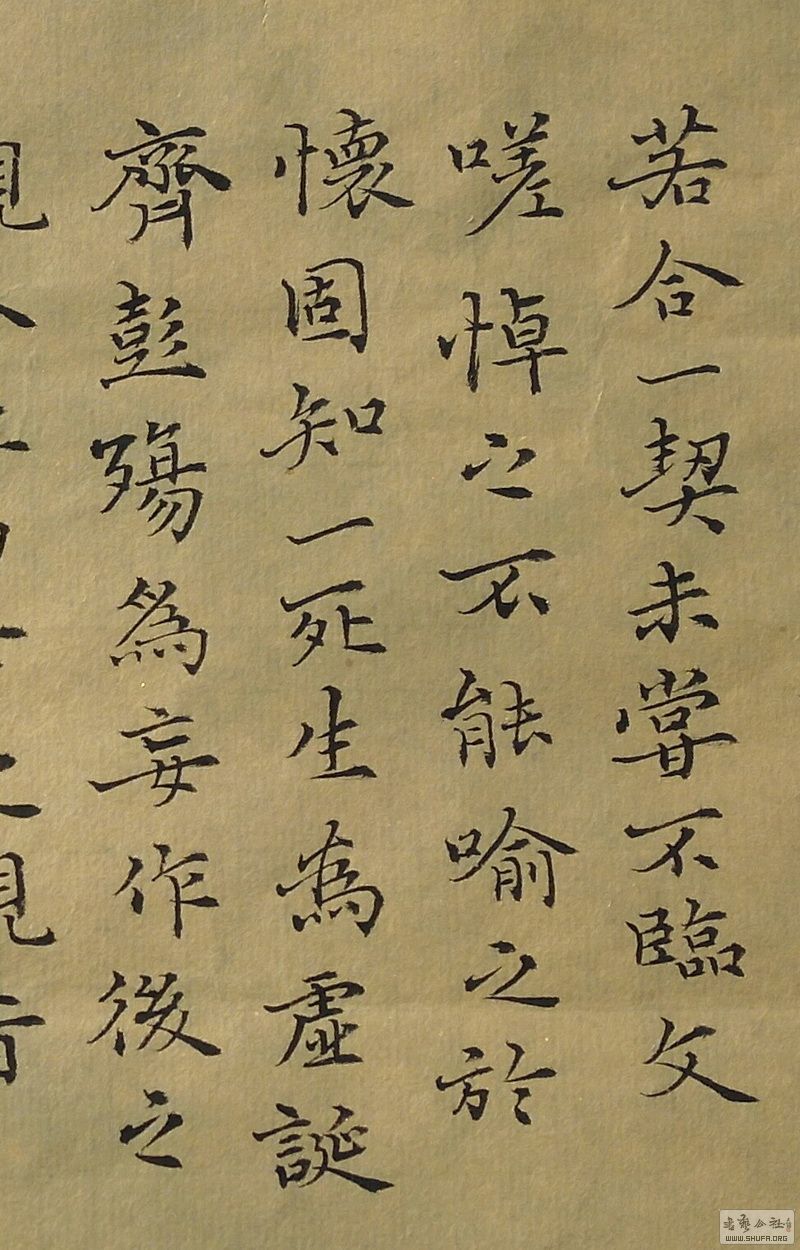 若合一契未嘗不臨文
嗟悼之不能喻之於
懷固知一死生為虛誕
齊彭殤爲妄作後之
公社
WWW.SHUFA.ORG